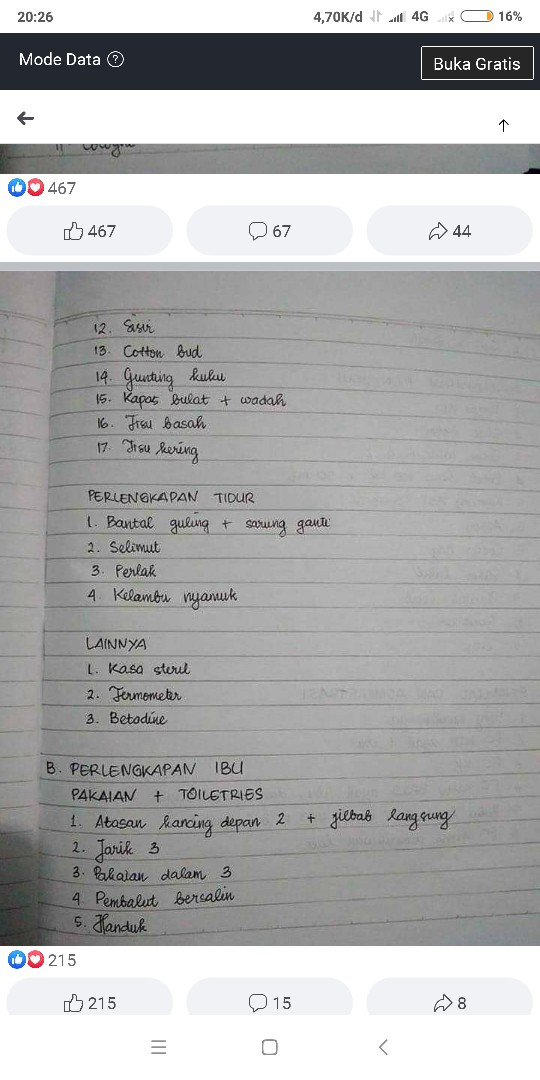 20:26
4,70K/d
4G
16%
Mode Data ?
Buka Gratis
467
467
67
44
12. Sisir
13. Cotton bud
14. Gunting kuku
15. Kapas bulat + wadah
16. Tisu basah
17. Tisu kering
PERLENGKAPAN TIDUR
1. Bantal guling + sarung ganti
2. Selimut
3. Perlak
4. Kelambu nyamuk
LAINNYA
1. Kasa steril
2. Termometer
3. Betadine
B. PERLENGKAPAN IBU
PAKAIAN + TOILETRIES
1. Atasan kancing depan 2 + jilbab langsung
2. Jarik 3
3. Pakaian dalam 3
4. Pembalut bersalin
5. Handuk
215
215
15
8